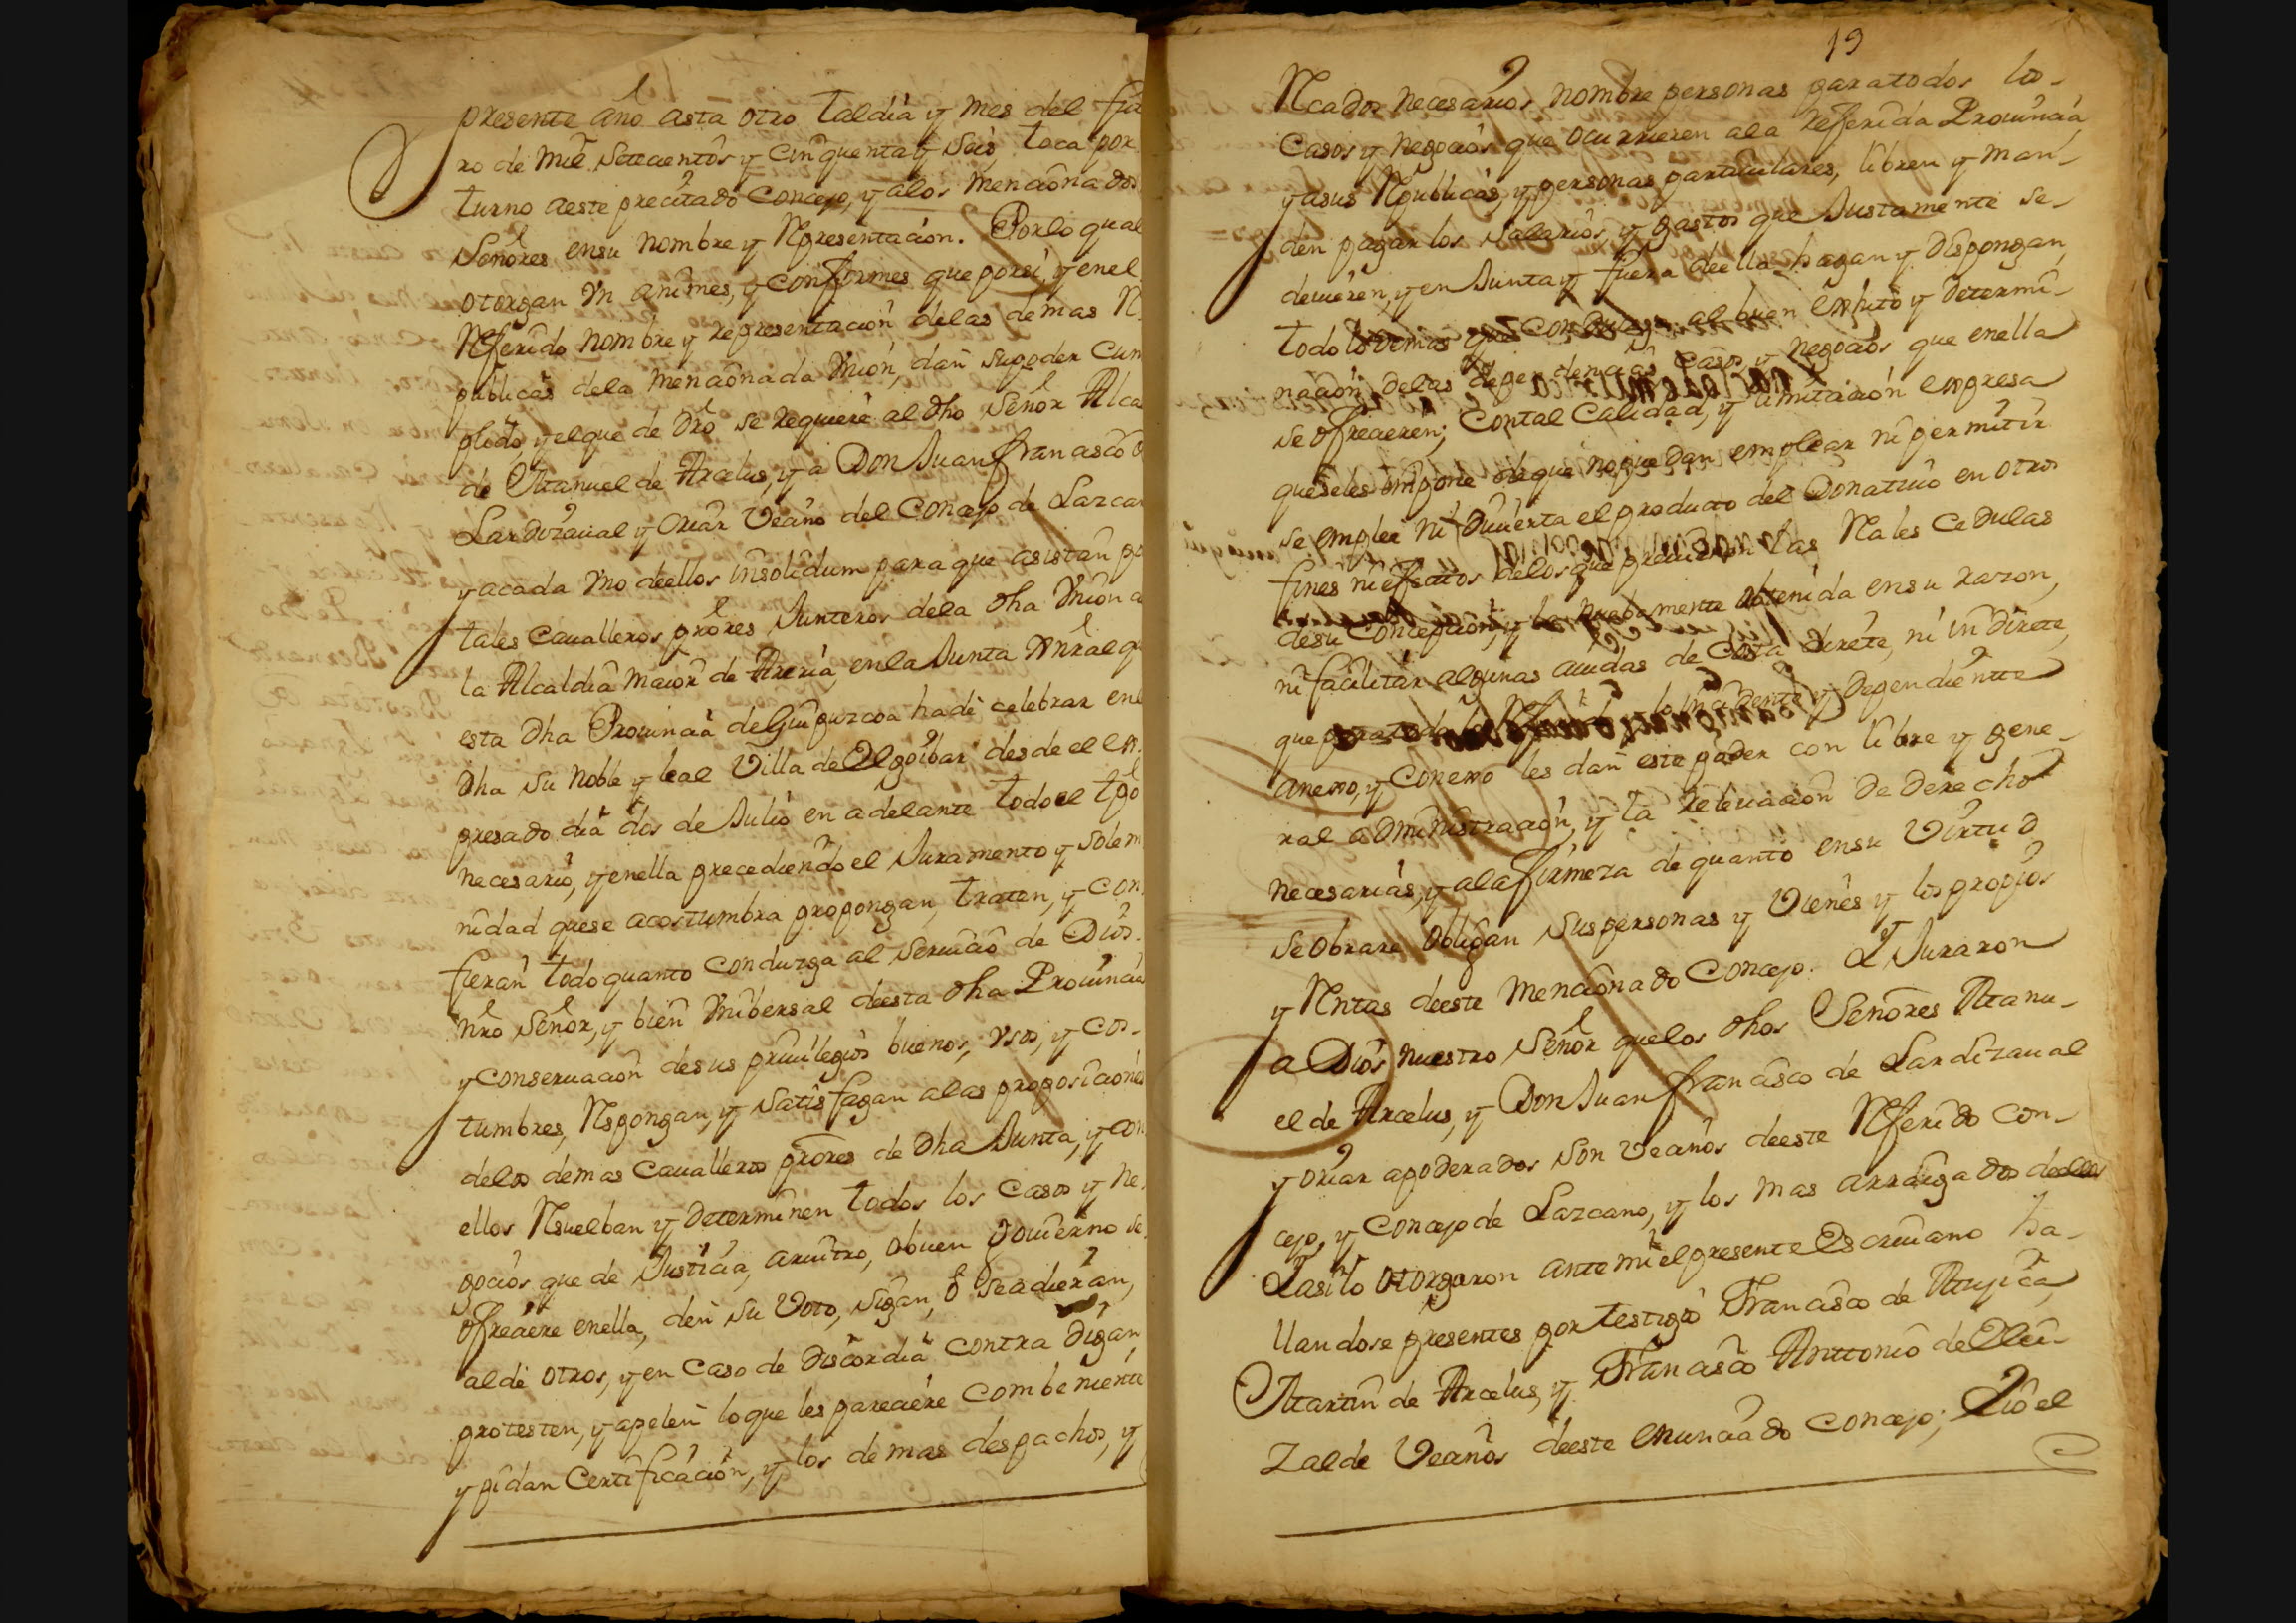 presente año asta otro tal dia y mes del fu
ro de mil Setecientos y cinquenta y Seis, toca por
turno aeste precitado Concejo, y alos mencionados
Señores ensu nombre y Representacion. Por lo qual
otorgan Vn animes, y conformes que porsi, y enel
Referido nombre y representacion delas demas R.
publicas dela mencionada Vnion, dan supoder cum
plido, y elque de Dro se requiere al dho Señor Alca
de Manuel de Arcelus, y a Don Juan francisco
Lardizaual y Oriar Vecino del Concejo de Lazca
y acada Vno deellos insolidum para que asistan po
tales Caualleros prores Junteros dela dha Vnion
la Alcaldia maior de Areria, enla Junta Gnral q
esta dha Prouincia de Guipuzcoa hade celebrar en
dha su noble y leal Villa de Elgoibar desde el ex
presado dia dos de Julio en adelante todo el tpo
necesario, y enella precediendo el Juramento y Solem
nidad quese acostumbra propongan, traten, y con
fieran todo quanto conduzga al seruicio de Dios
nro Señor, y bien Vnibersal deesta dha Prouincia
y conseruacion desus priuilegios buenos, vsos, y cos-
tumbres, Respongan, y Satisfagan alas proposiciones
delos demas Caualleros prores de dha Junta, y con
ellos Resuelban y determinen todos los casos y ne
gocios que de Justicia, aruitro, o buen gouierno se
ofreciere enella, den su Voto, Sigan, ò se adieran,
al de otros, y en caso de discordia contra digan,
protesten, y apelen lo que les pareciere combeniente
y pidan Certificacion, y los demas despachos, y
19
Recados necesarios, nombre personas para todos los
Casos y negocios que ocurrieren ala referida Prouincia,
y asus Republicas, y personas particulares, libren y man-
den pagar los salarios, y gastos que Justamente se
deuieren, y en Junta y fuera deella hagan y dispongan,
todo lo demas que Conduzga al buen exsito y determi-
nacion delas dependencias Casos, y negocios que enella
se ofrecieren; Con tal Calidad, y limitacion expresa
queseles impone deque no puedan emplear ni permitir
se emplee ni diuierta el producto del Donatiuo en otros
fines ni efectos delos que preuienen las Reales Cedulas
desu Concepcion, y la nuebamente obtenida ensu razon,
ni facilitar algunas aiudas de Costa direte, ni indirete,
que para todo lo Referido y lo incidente y dependiente
anexo, y Conexo les dan este poder con libre y gene-
ral administracion, y la releuacion de derecho
necesarias, y ala firmeza de quanto ensu Virtud
se obrare obligan sus personas y Vienes y los propios
y Rentas deeste mencionado Concejo. Y Juraron
a Dios nuestro Señor que los dhos Señores Manu-
el de Arcelus, y Don Juan francisco de Lardizaual
y Oriar apoderados Son Vecinos deeste Referido Con-
cejo, y Concejo de Lazcano, y los mas arraigados deellos
Y asi lo otorgaron ante mi el presente Escriuano ha-
llandose presentes por testigos Francisco de Mujica,
Martin de Arcelus, y Francisco Antonio de Elei-
zalde Vecinos deeste enunciado Concejo; Yo el